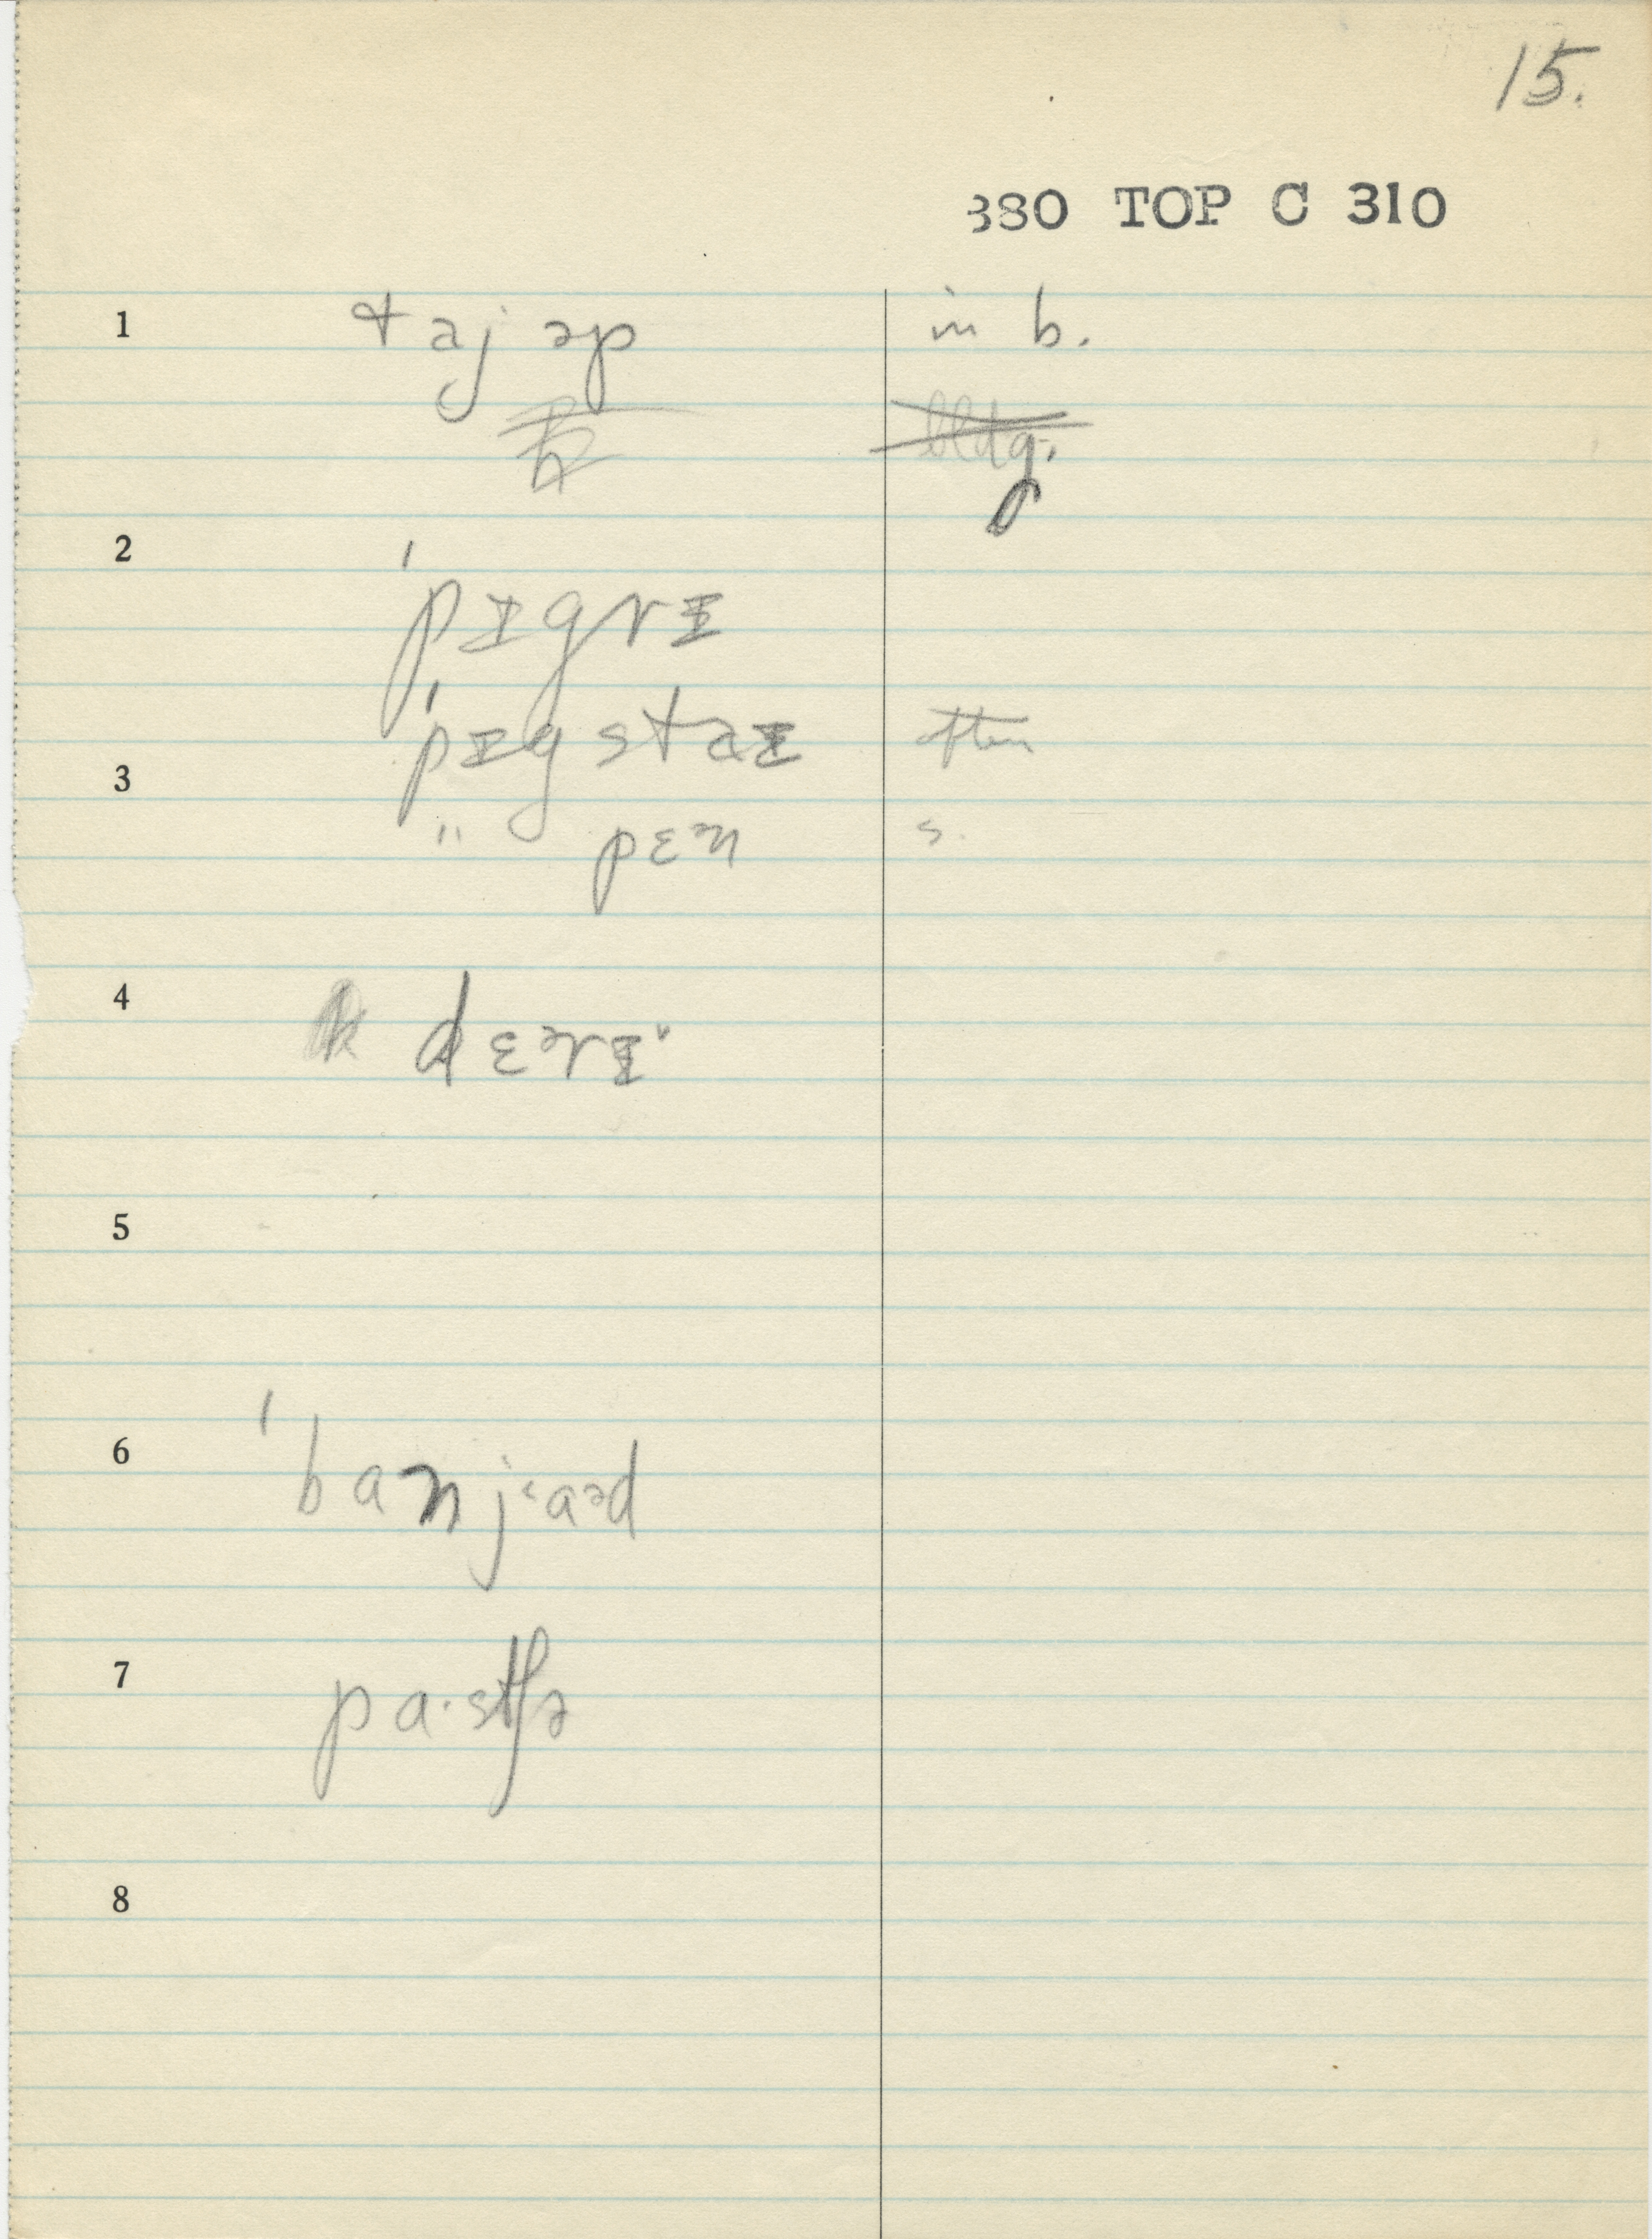 15.
380 TOP C 310
1 taj əp in b.
bldg.
2 ˈpɪgrɪ
ˈpɪgstaɪ often
3 " pɛən s.
4 dɛərɪ
5
6 ˈbanjaəd
7 pa·stʃə
8